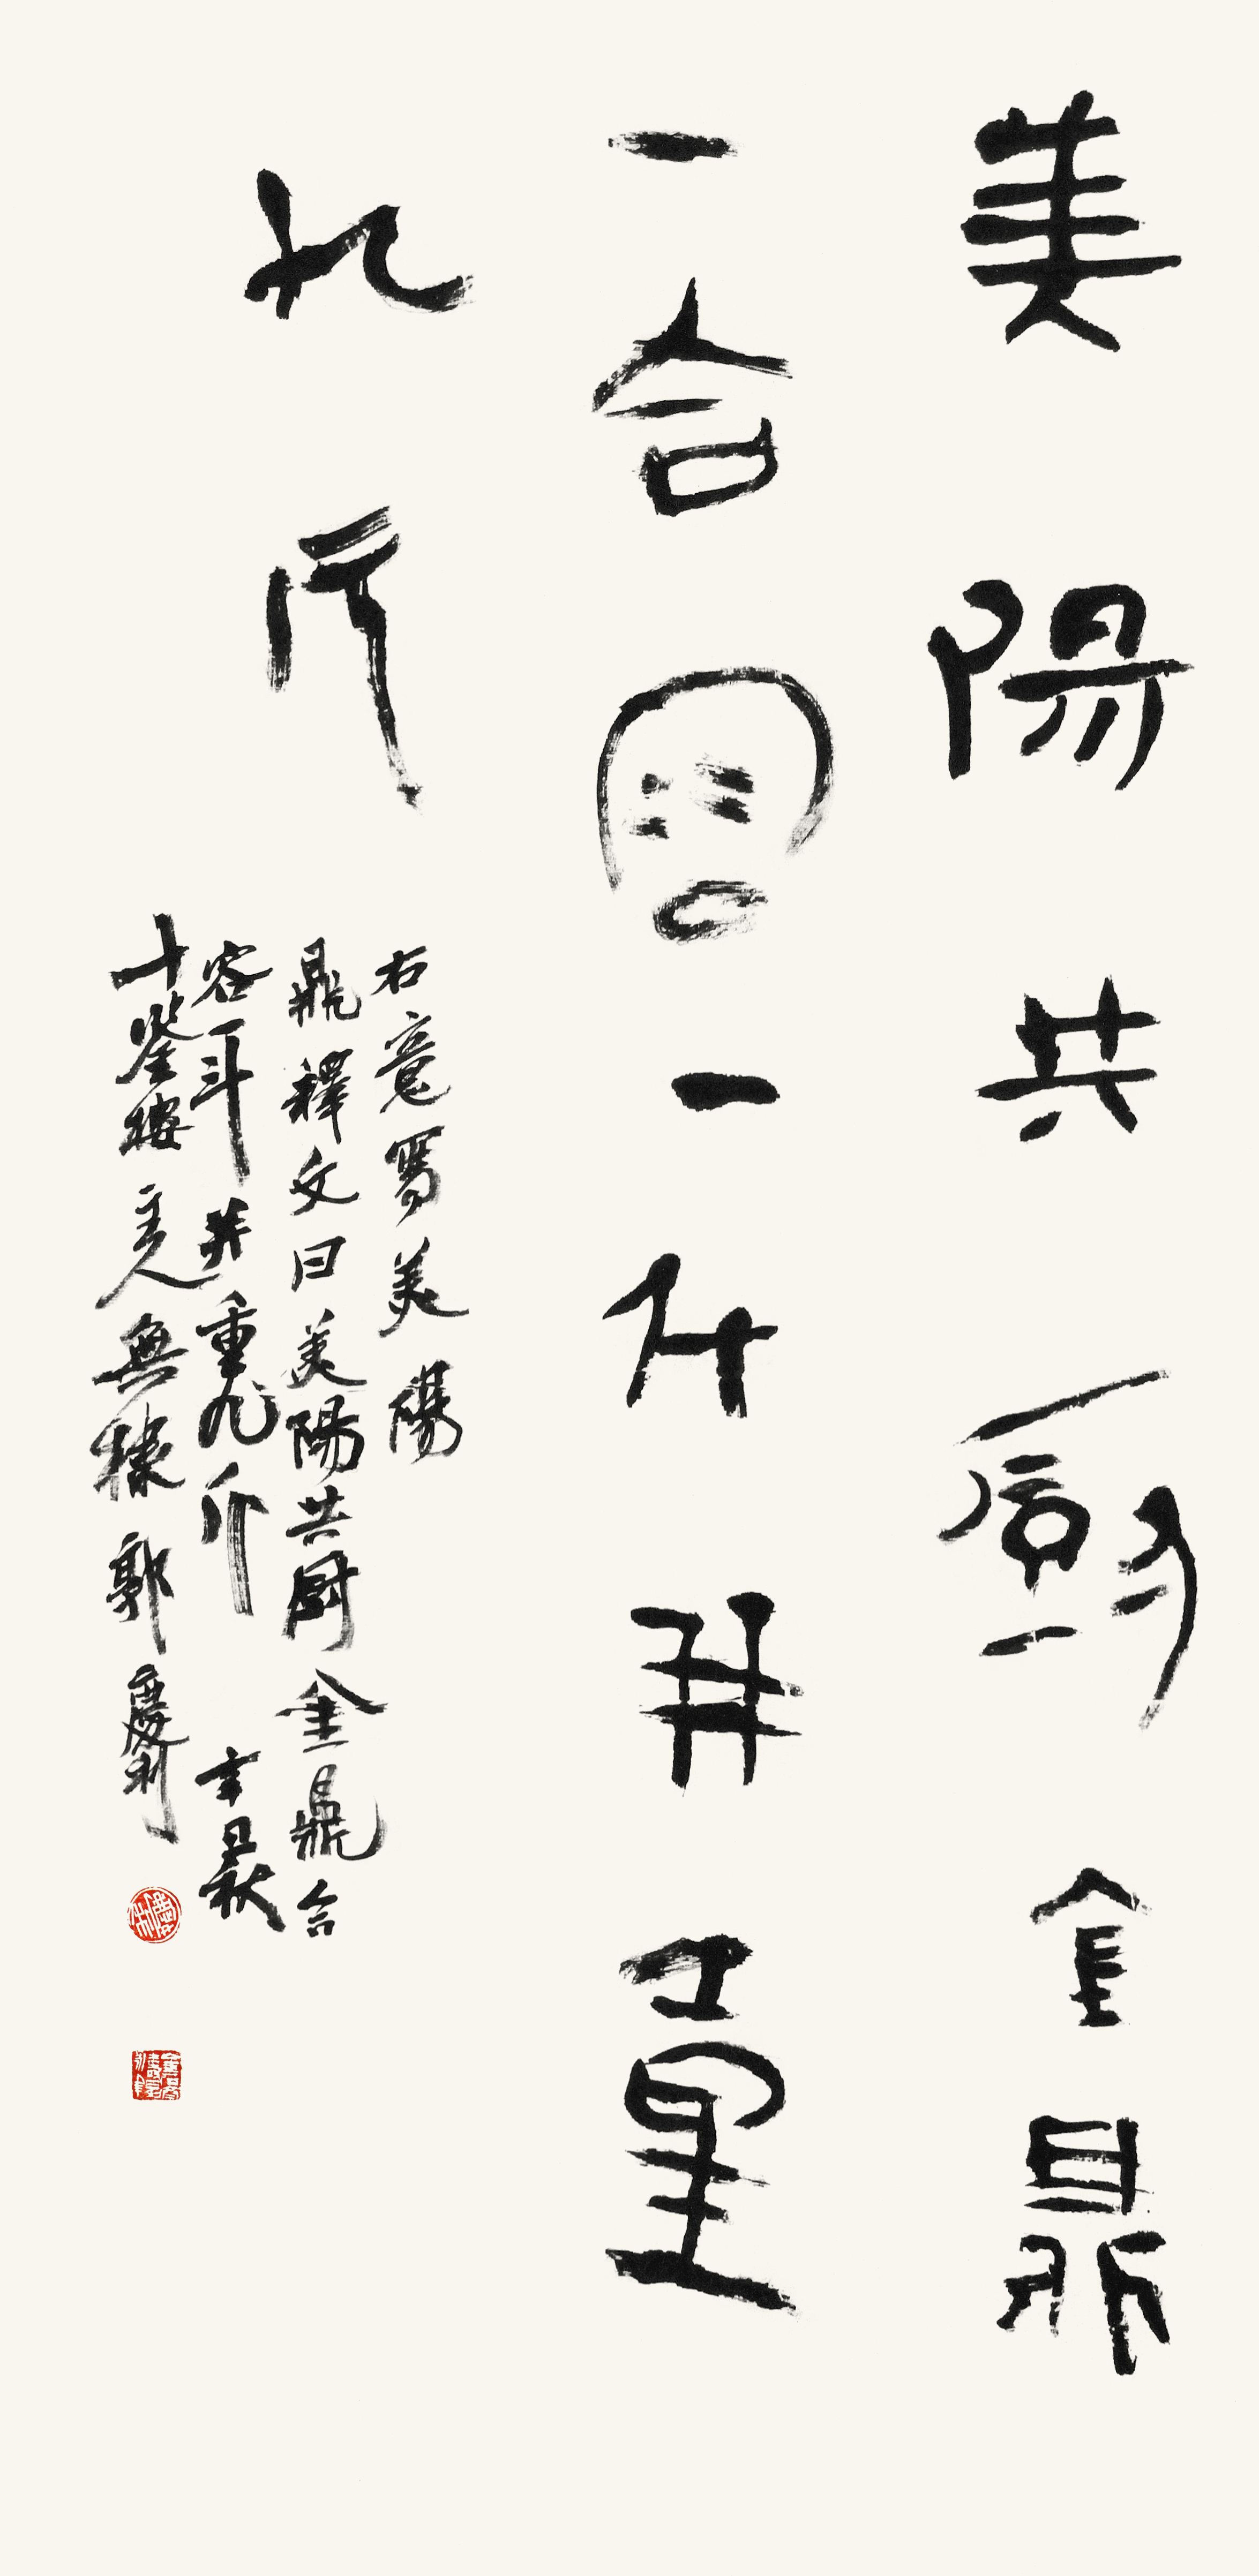 美陽共廚金鼎
一合容一斗并重
九斤
右意寫美陽
鼎釋文曰美陽共厨金鼎合
容一斗并重九斤 辛丑秋
十樓主人無棣郭慶利